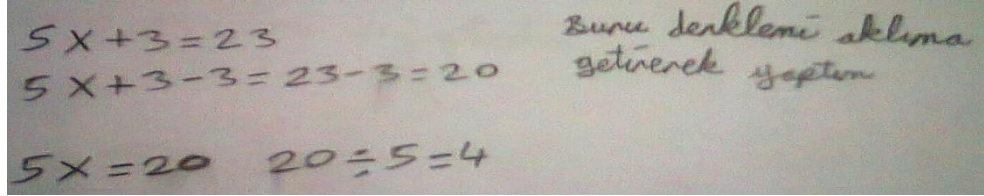 5x+3=23
5x+3-3=23-3=20
5x=20 20÷5=4
Bunu denklemi aklıma
getirerek yaptım